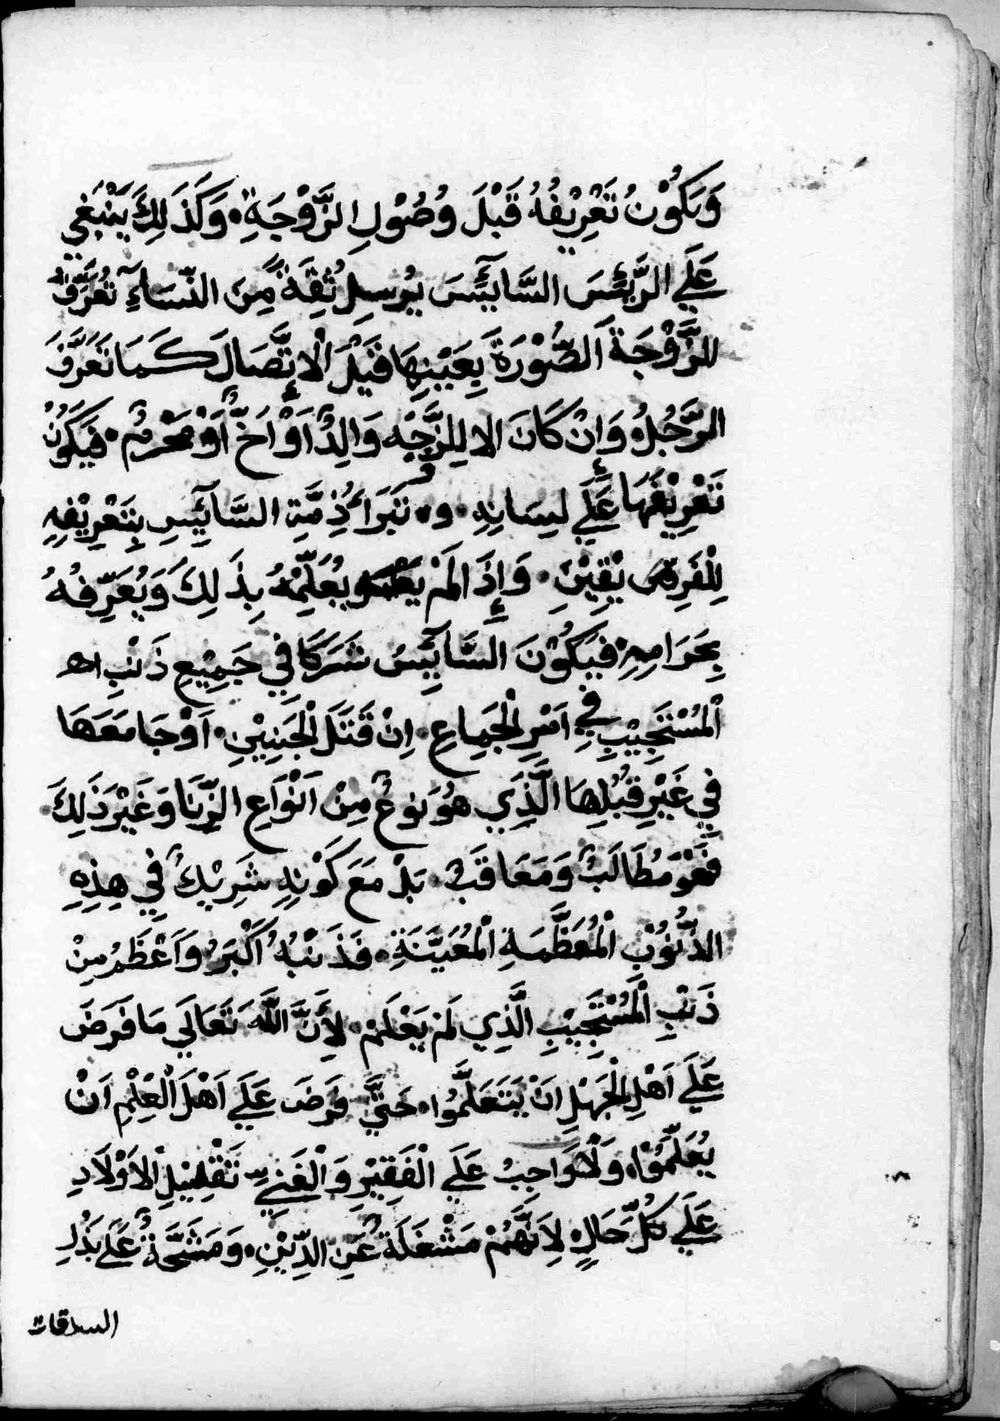 وَيَكُوْنُ تَعْرِيْفُهُ قَبْلَ وُصُوْلِ الزَّوْجَةِ. وَكَذَلِكَ يَنْبَغِي
عَلَي الرَّيِّسَ السَّآيِسَ يُرسِلُ ثِقَةً مِنَ النِّسَآءِ تُعَرِّفُ
للزَّوْجَةَ الصُّوْرَةَ بِعَيْنِهَا قَبْلَ الْاِتَّصَالَ كَمَا تَعَرَّفَ
الرَّجُلُ وَاِنْ كَانَ الا لِلزَّجِه وَالِدٌ اَوْ اَخٌ اَوْ مَحْرَمٌ. فَيَكُوْنُ
تَعْرِيْفُهَا عَلَي لِسَانِهِ. وَتَبْرَأ ذِمَّةِ السَّآيِسِ بِتَعْرِيْفِهِ
لِلْفَرِيْقَيْنِ. وَإِذَ الَمْ يَعْلَمْ وَيُعَلِّمُهُ بِذَلِكَ وَيُعَرِّفُهُ
بِحَرَامِهِ فَيَكُوْنَ السَّآيِسُ شَرَكًا فِي جَمِيْعِ ذَنْبِ اهـ
الْمُسْتَجِيْبِ فِي اَمْرِ الْجَمِاعِ. اِنْ قَتَلَ الْجَنِيْنِ. اَوْ جَامَعَهَا
فِي غَيْرِ قُبُلِهَا الَّذِي هُوَ نَوعٌ مِنْ اَنْوَاعِ الزِّنَا وَغَيْرَ ذَلِكَ.
فَهْوَ مُطَالَبٌ وَمَعَاقَبْ. بَلْ مَعَ كَوْنِهِ شَرِيْكٌ فِي هِذِهِ
الذُّنُوْبِ الْمُعَظَّمَةِ الْمُعَيَّنَةِ. فَذَنْبُهُ اَكْبَرُ وَاَعْظَمُ مِنْ
ذَنْبِ الْمُسْتَجِيْبِ الَّذِي لَمْ يَعْلَمْ. لِأَنَّ اللَّهَ تَعَالَي مَا فَرَضَ
عَلَي اَهْلِ الْجَهْلِ اَنْ يَتَعَلَّمُوا. حَتَّي فَرَضَ عَلَي اَهْلَ الْعِلْمِ اَنْ
يُعَلِّمُوْا. وَلْاوَاجِبُ عَلَي الْفَقِيْرِ وَالْغَنِيِّ تَقْلِيْلِ الاَوْلَادِ
عَلَي كُلِّ حَالٍ. لِاَنَّهُمْ مَشْغَلَةٌ عَنِ الدِّيْنِ. وَمَشَحَّةٌ عَلَي بَذْلِ
السدقات